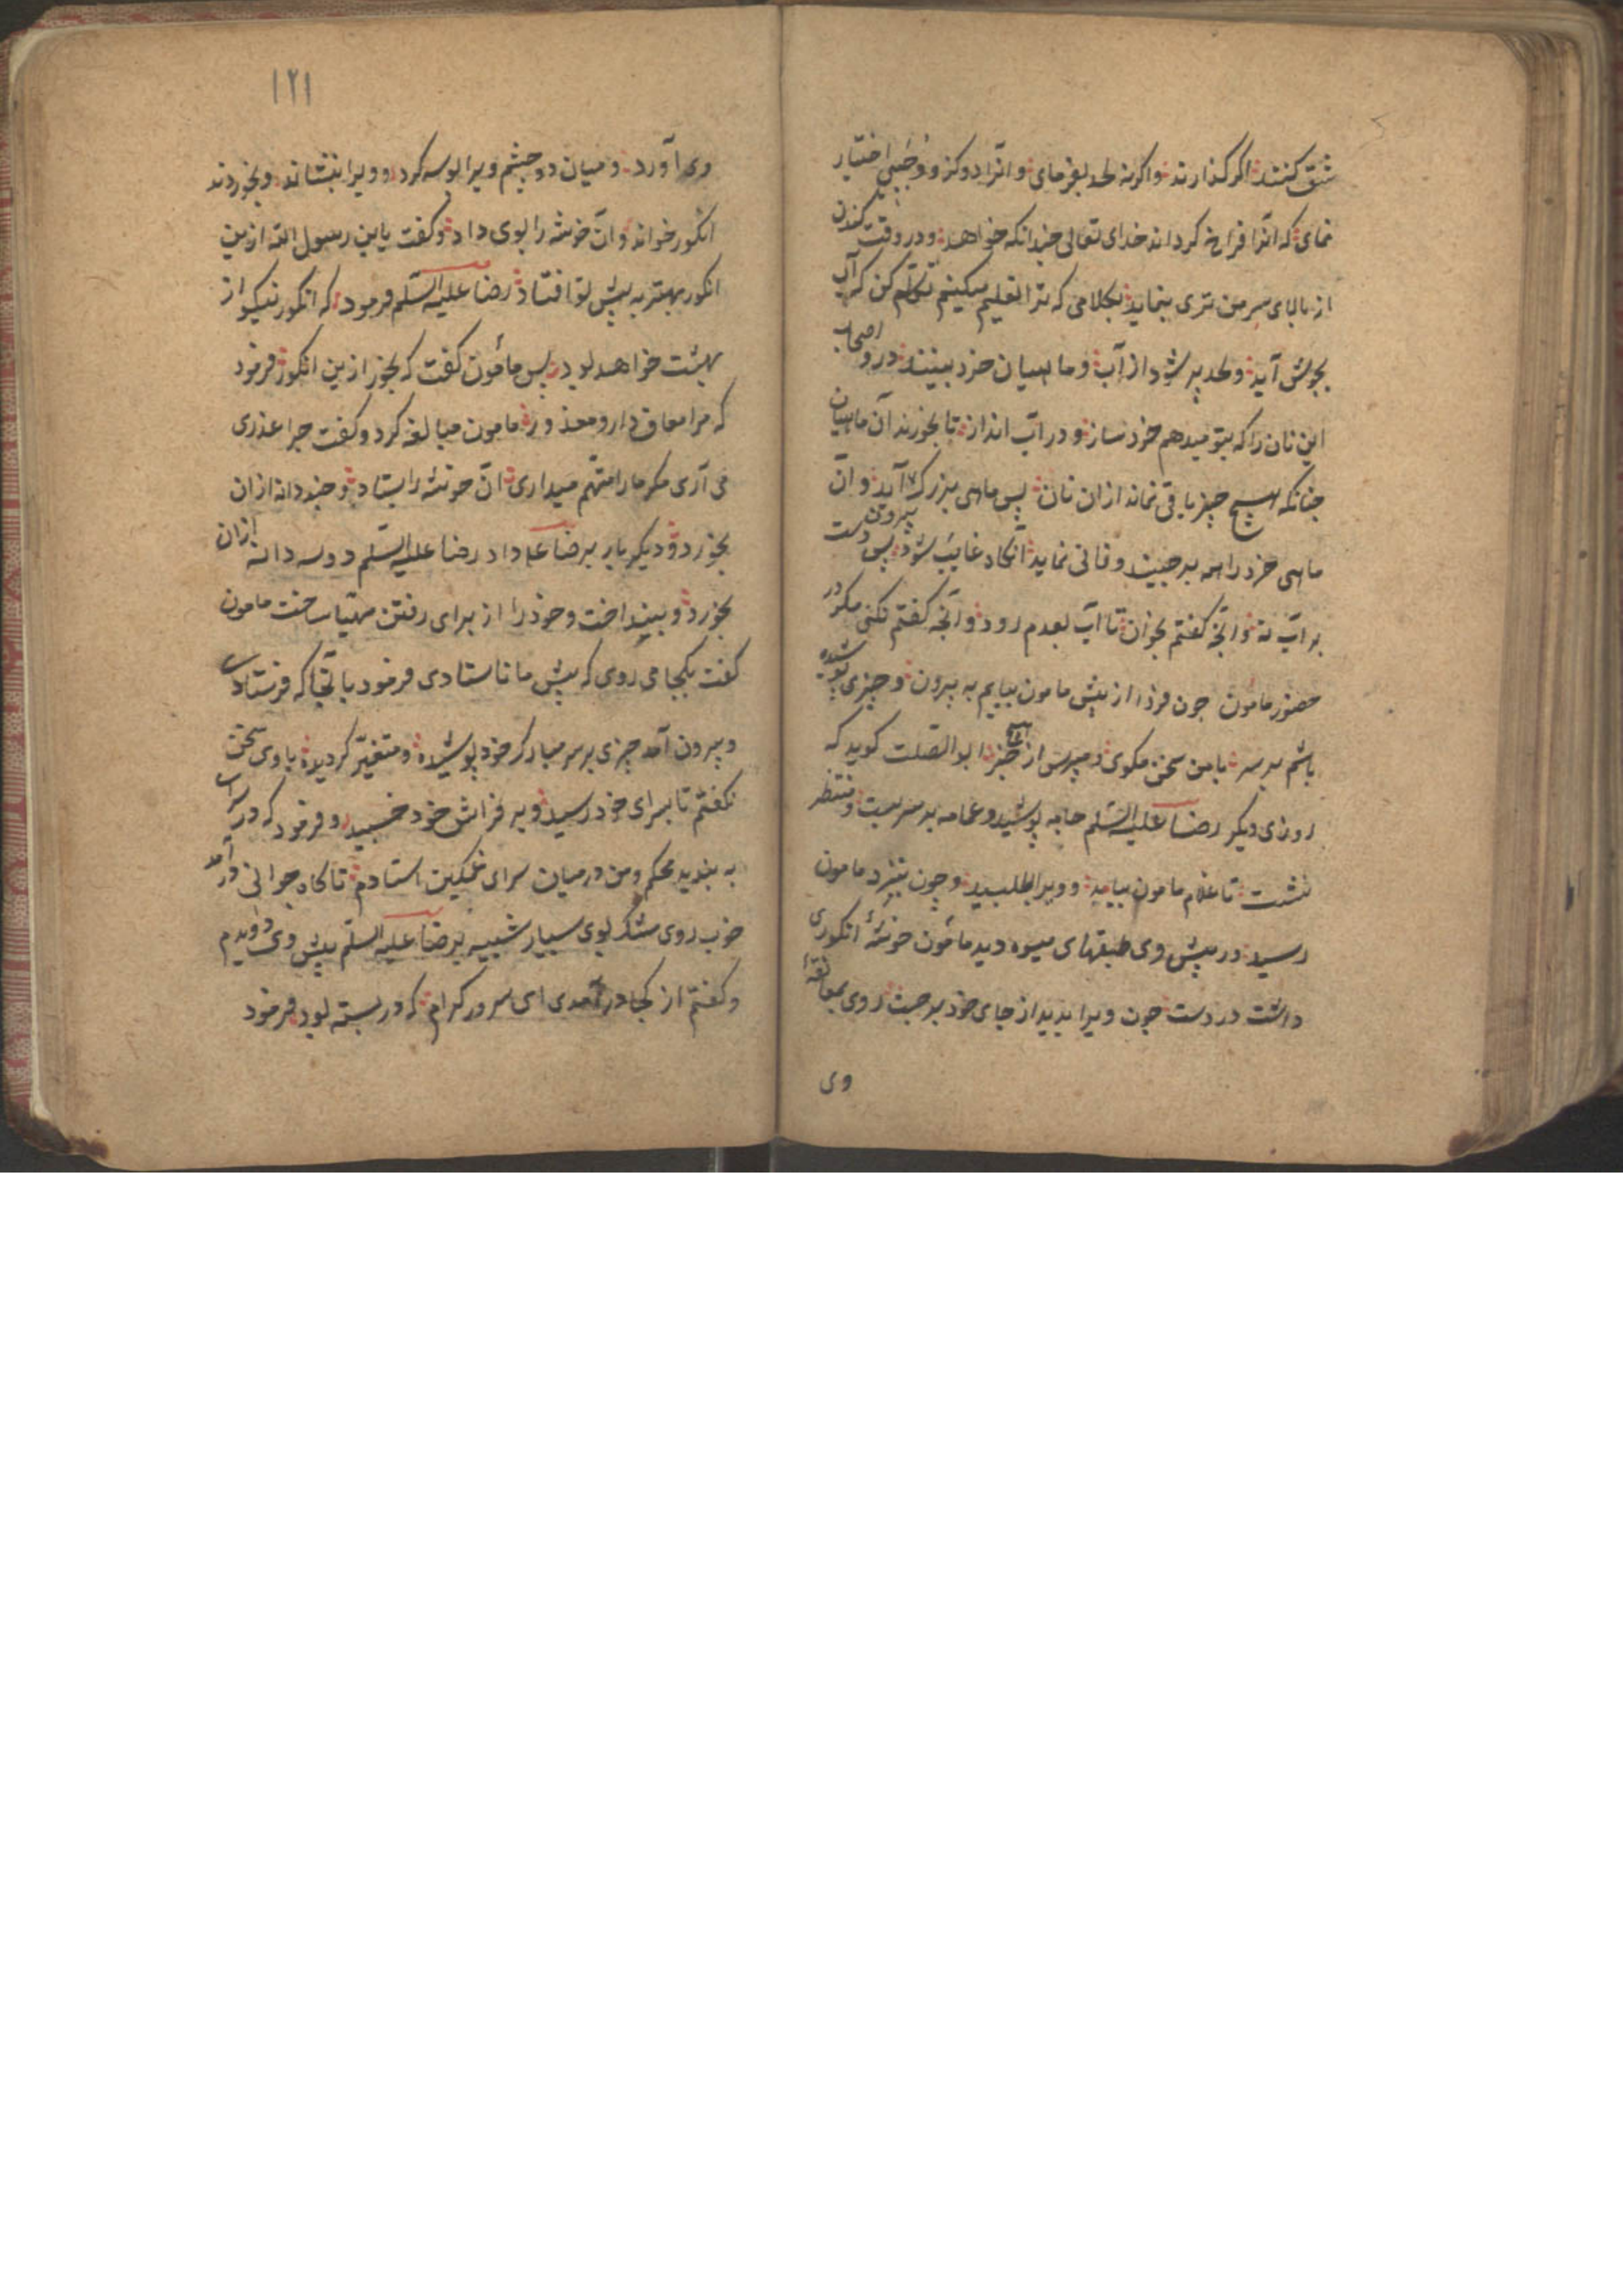 شق کنند اگر گذارند و اگر نه لحد بفرمای و آنرا دو گز و وجبی اختیار
نمای که آنرا فراخ گرداند خدای تعالی چندانکه خواهد و در وقت کندن
از بالای سر من تری بنماید بکلامی که ترا تعلیم میکنیم تکلم کن که آب
بجوش آید و لحد پر شود از آب و ماهیان خرد بینند در و اصحاب
این نان را که بتو میدهم خرد ساز و در آب انداز تا بخورند آن ماهیان
چنانکه هیچ چیز باقی نماند از ان نان پس ماهی بزرگ بیرون آید و آن
ماهی خرد را همه برچیند و فانی نماید آنگاه غایب شود پس دست
بر آب نه و آنچه گفتم بخوان تا آب بعدم رود و آنچه گفتم نکنی مگر در
حضور مامون چون فردا از پیش مامون بیایم به بیرون و چیزی پوشیده
باشم بر سر با من سخن مگوی و مپرس از خبر ابو الصلت گوید که
روزی دیگر رضا علیه السلم جامه پوشید و عمامه بر سر بست و منتظر
نشست تا غلام مامون بیامد و ویرا طلبید و چون بنزد مامون
رسید در پیش وی طبقهای میوه دید مأمون خوشهٔ انگوری
داشت در دست چون ویرا بدید از جای خود برجست روی بمعانقهٔ
وی
۱۲۱
وی آورد و میان دو چشم ویرا بوسه کرد و ویرا بنشاند و بخوردند
انگور خواند و آن خوشه را بوی داد و گفت یا ابن رسول الله ازین
انگور بهتر به پیش تو افتاد رضا علیه السلم فرمود که انگور نیکو از
بهشت خواهد بود پس مأمون گفت که بخور ازین انگور فرمود
که مرا معاف دار و معذور مامون مبالغه کرد و گفت چرا عذری
می آری مگر ما را متهم میداری آن خوشه را بستاد و چند دانه از ان
بخورد و دیگر بار برضا ع داد رضا علیه السلم دو سه دانه از ان
بخورد و بینداخت و خود را از برای رفتن مهیا ساخت مامون
گفت بکجا می روی که پیش ما نا ستادی فرمود با آنجا که فرستاد
و بیرون آمد چیزی بر سر مبارک خود پوشیده و متغیر گردیده با وی سخن
نگفتم تا بسرای خود رسید و بر فراش خود خسپید و فرمود که در سرا
به بندید محکم و من در میان سرای غمگین استادم تا گاه جوانی در آمد
خوب روی مشک بوی بسیار شبیه برضا علیه السلم پیش وی دویدم
و گفتم از کجا در آمدی ای سرور کرام که در بسته بود فرمود